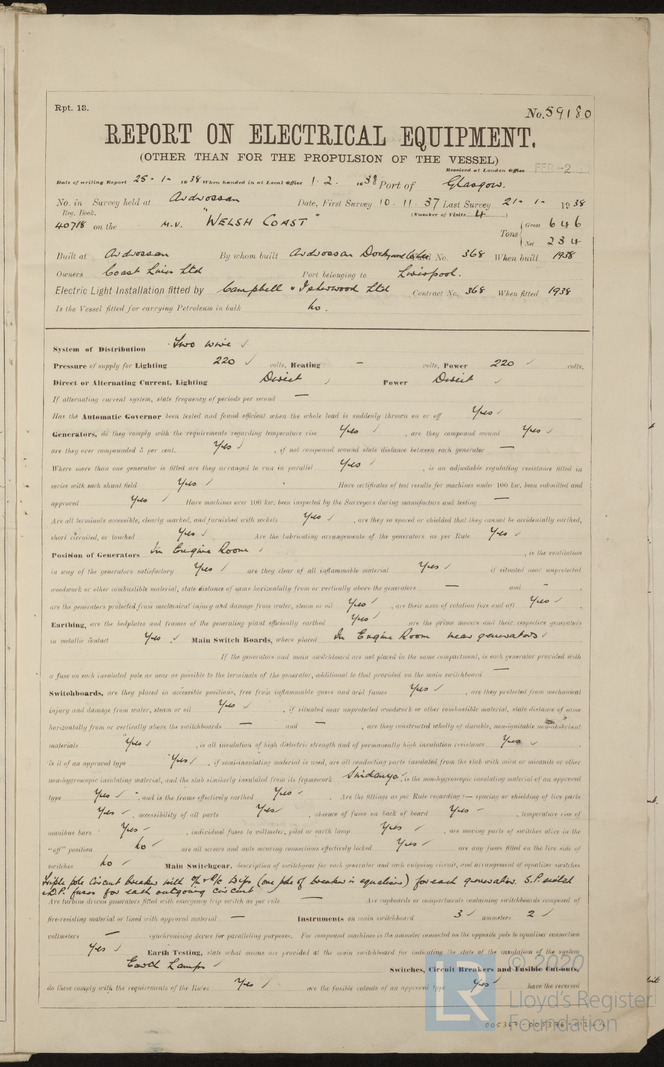 Rpt. 13.
No. 59180
REPORT ON ELECTRICAL EQUIPMENT.
(OTHER THAN FOR THE PROPULSION OF THE VESSEL)
Received at London Office FEB -2
Date of writing Report 25-1-1938 When handed in at Local Office 1.2.1938 Port of Glasgow.
No. in Survey held at Ardrossan Date, First Survey 10.11.37 Last Survey 21-1-1938
Reg. Book. (Number of Visits 4)
40718 on the M.V. "WELSH COAST" Tons Gross 646
Net 234
Built at Ardrossan By whom built Ardrossan Dockyard Co Ltd. No. 368 When built 1938
Owners Coast Lines Ltd Port belonging to Liverpool.
Electric Light Installation fitted by Campbell & Isherwood Ltd Contract No. 368 When fitted 1938
Is the Vessel fitted for carrying Petroleum in bulk No.
System of Distribution Two wire ✓
Pressure of supply for Lighting 220 ✓ volts, Heating – volts, Power 220 ✓ volts.
Direct or Alternating Current, Lighting Direct ✓ Power Direct ✓
If alternating current system, state frequency of periods per second —
Has the Automatic Governor been tested and found efficient when the whole load is suddenly thrown on or off Yes ✓
Generators, do they comply with the requirements regarding temperature rise Yes ✓, are they compound wound Yes ✓
are they over compounded 5 per cent. Yes ✓, if not compound wound state distance between each generator —
Where more than one generator is fitted are they arranged to run in parallel Yes ✓, is an adjustable regulating resistance fitted in
series with each shunt field Yes ✓ Have certificates of test results for machines under 100 kw. been submitted and
approved Yes ✓ Have machines over 100 kw. been inspected by the Surveyors during manufacture and testing —
Are all terminals accessible, clearly marked, and furnished with sockets Yes ✓, are they so spaced or shielded that they cannot be accidentally earthed,
short circuited, or touched Yes ✓ Are the lubricating arrangements of the generators as per Rule Yes ✓
Position of Generators In Engine Room ✓, is the ventilation
in way of the generators satisfactory Yes ✓ are they clear of all inflammable material Yes ✓ if situated near unprotected
woodwork or other combustible material, state distance of same horizontally from or vertically above the generators — and "
are the generators protected from mechanical injury and damage from water, steam or oil Yes ✓, are their axes of rotation fore and aft Yes ✓
Earthing, are the bedplates and frames of the generating plant efficiently earthed Yes ✓ are the prime movers and their respective generators
in metallic contact Yes ✓ Main Switch Boards, where placed In Engine Room near generators ✓
If the generators and main switchboard are not placed in the same compartment, is each generator provided with
a fuse on each insulated pole as near as possible to the terminals of the generator, additional to that provided on the main switchboard —
Switchboards, are they placed in accessible positions, free from inflammable gases and acid fumes Yes ✓, are they protected from mechanical
injury and damage from water, steam or oil Yes ✓, if situated near unprotected woodwork or other combustible material, state distance of same
horizontally from or vertically above the switchboards — and —, are they constructed wholly of durable, non-ignitable non-absorbent
materials Yes ✓, is all insulation of high dielectric strength and of permanently high insulation resistance Yes ✓
Is it of an approved type Yes ✓, if semi-insulating material is used, are all conducting parts insulated from the slab with mica or micanite or other
non-hygroscopic insulating material, and the slab similarly insulated from its framework Sindanyo, is the non-hygroscopic insulating material of an approved
type Yes ✓, and is the frame effectively earthed Yes ✓. Are the fittings as per Rule regarding:— spacing or shielding of live parts
Yes ✓, accessibility of all parts Yes ✓, absence of fuses on back of board Yes ✓, temperature rise of
omnibus bars Yes ✓, individual fuses to voltmeter, pilot or earth lamp Yes ✓, are moving parts of switches alive in the
"off" position No ✓ are all screws and nuts securing connections effectively locked Yes ✓ are any fuses fitted on the live side of
switches No ✓ Main Switchgear, description of switchgear for each generator and each outgoing circuit, and arrangement of equaliser switches
Triple pole Circuit breaker with O/L & R/C trips (one pole of breaker in equaliser) for each generator. S.P. switch
& D.P. fuses for each outgoing circuit
Are turbine driven generators fitted with emergency trip switch as per rule — Are cupboards or compartments containing switchboards composed of
fire-resisting material or lined with approved material — Instruments on main switchboard 3 ✓ ammeters 2 ✓
voltmeters — synchronising device for paralleling purposes. For compound machines is the ammeter connected on the opposite pole to equaliser connection
Yes ✓ Earth Testing, state what means are provided at the main switchboard for indicating the state of the insulation of the system
Earth Lamps ✓ Switches, Circuit Breakers and Fusible Cut-outs,
do these comply with the requirements of the Rules Yes ✓ are the fusible cutouts of an approved type Yes ✓ have the reversed
© 2020
LR
Lloyd's Register
Foundation